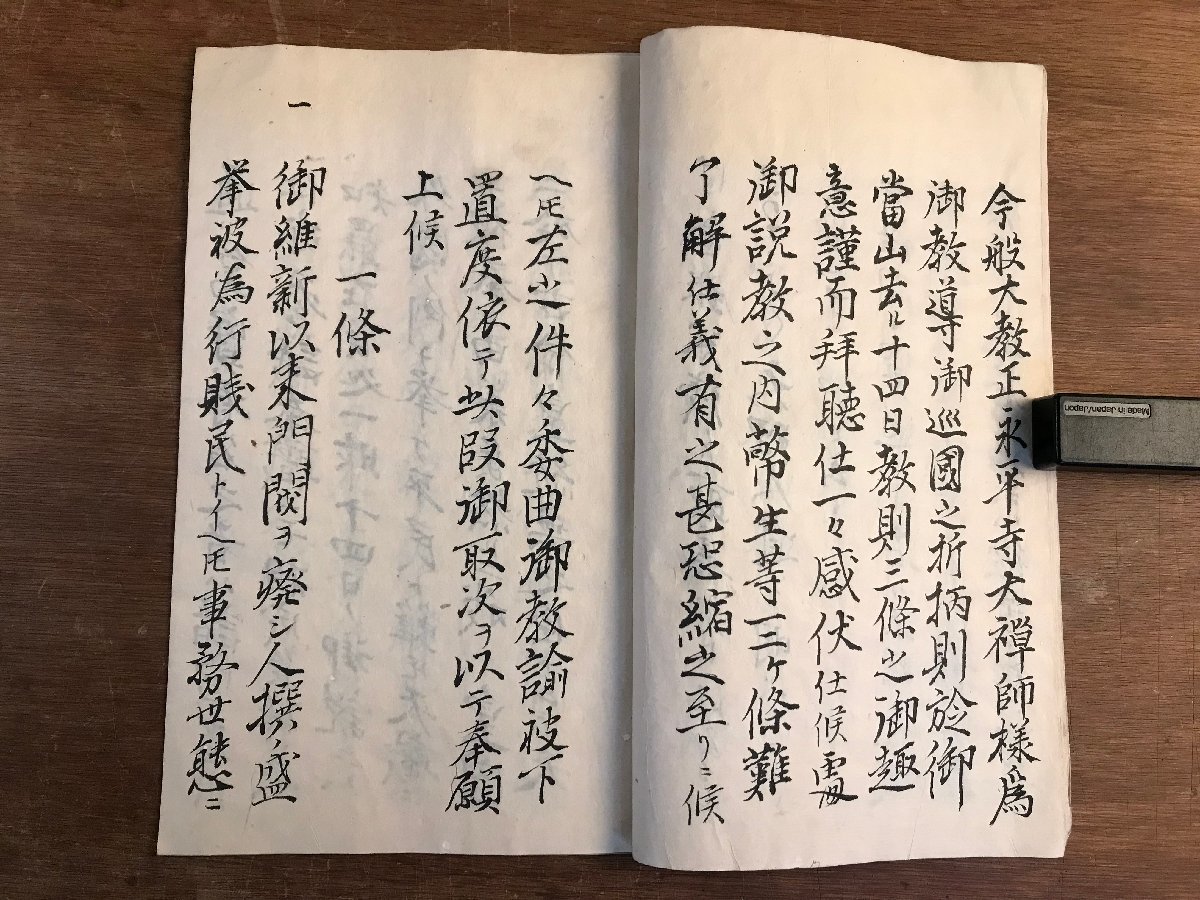 今般大教正永平寺大禅師様爲
御教導御巡國之折柄則於御
當山去ル十四日教則三條之御趣
意謹而拜聴仕一々感伏仕候處
御説教之内幣生等一二ケ條難
了解仕義有之甚恐縮之至リニ候
ヘ𪜈左之件々委曲御教諭被下
置度依テ此段御取次ヲ以テ奉願
上候
一條
一
御維新以来門閥ヲ癈シ人撰ノ盛
挙被為行賎民トイヘ𪜈事務世態ニ
Made in Japan/Japon